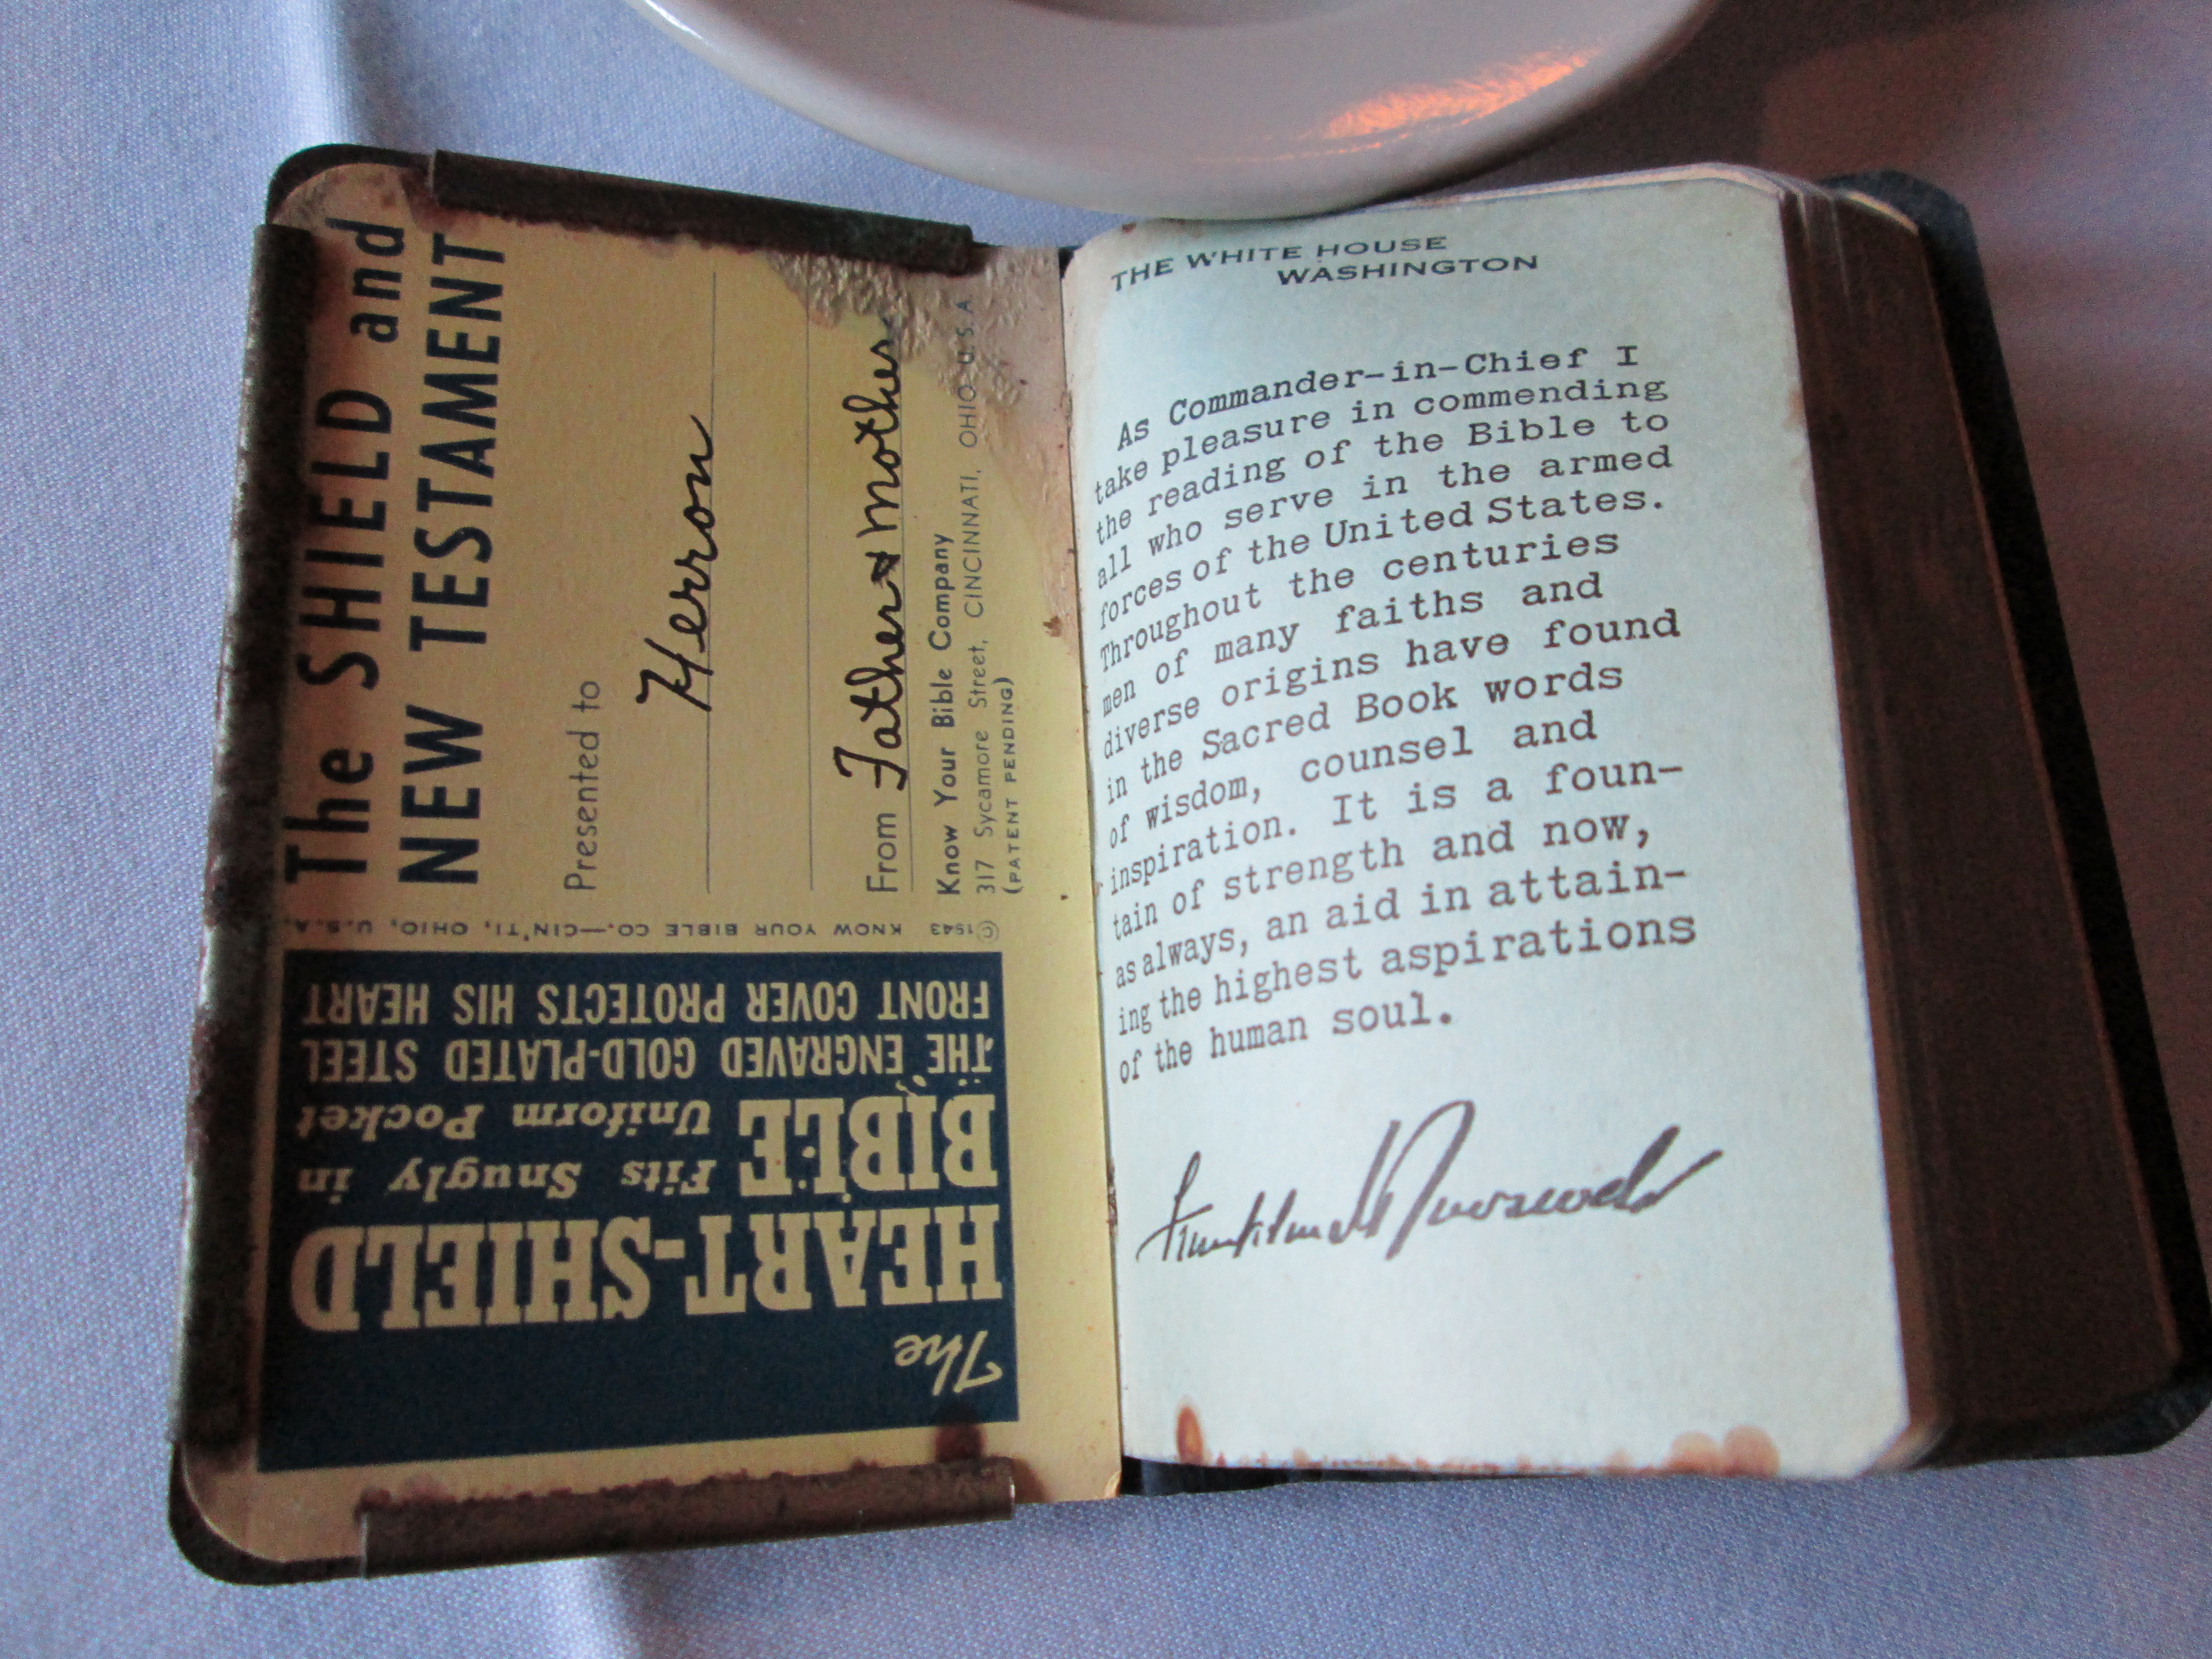 The SHIELD and
NEW TESTAMENT
Presented to
Herron
From Father & Mother
Know Your Bible Company
317 Sycamore Street, CINCINNATI, OHIO-U.S.A
(PATENT PENDING)
©1943 KNOW YOUR BIBLE CO.—CIN'TI, OHIO, U.S.A.
The
HEART-SHIELD
BIBLE Fits Snugly in
Uniform Pocket
THE ENGRAVED GOLD-PLATED STEEL
FRONT COVER PROTECTS HIS HEART
THE WHITE HOUSE
WASHINGTON
As Commander-in-Chief I
take pleasure in commending
the reading of the Bible to
all who serve in the armed
forces of the United States.
Throughout the centuries
men of many faiths and
diverse origins have found
in the Sacred Book words
of wisdom, counsel and
inspiration. It is a foun-
tain of strength and now,
as always, an aid in attain-
ing the highest aspirations
of the human soul.
Franklin D Roosevelt